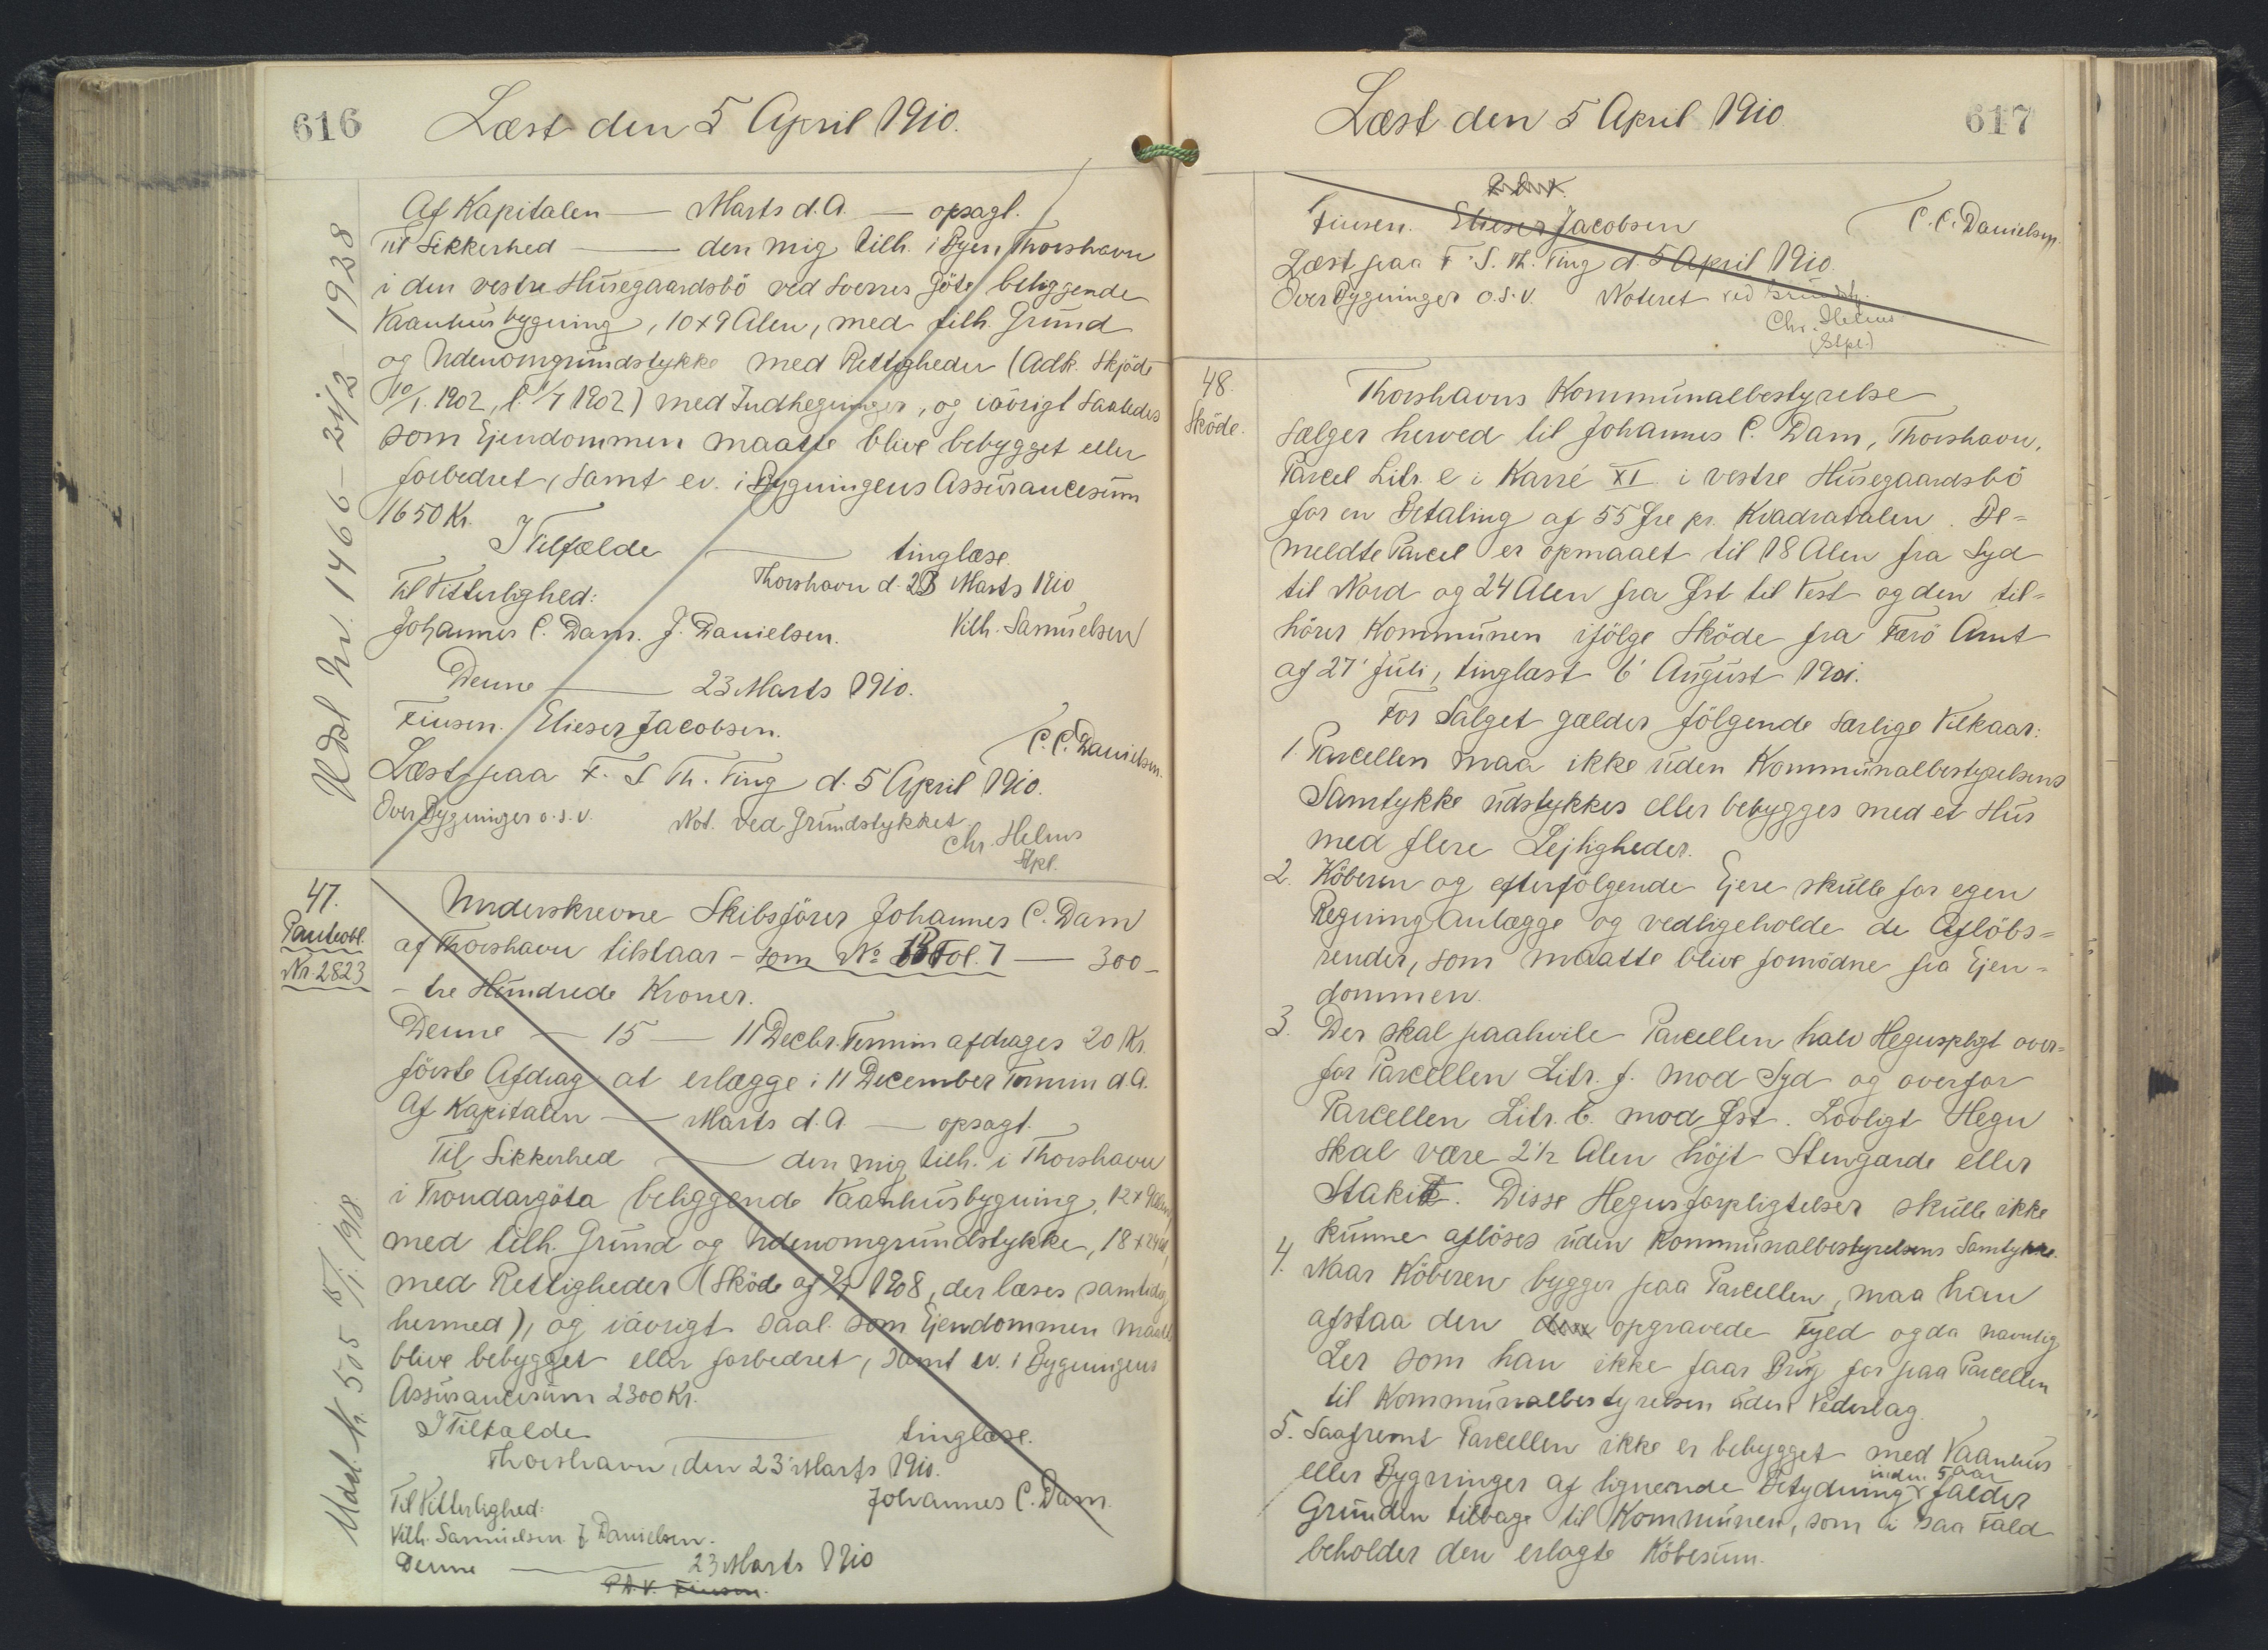 616
Læst den 5 April 1910.
Af Kapitalen — Marts d. A. — opsagt.
Til Sikkerhed — den mig tilh. i Byen Thorshavn
i den vestre Husegaardsbö ved Sverres Göte beliggende
Vaanhusbygning, 10 x 9 Alen, med tilh. Grund
og Udenomgrundstykke med Rettigheder (Adk. Skjöde
10/1. 1902, l. 1/7 1902) med Indhegninger, og iövrigt saaledes
som Ejendommen maatte blive bebygget eller
forbedret, samt ev. i Bygningens Assurancesum
1650 Kr.
I Tilfælde — tinglæse.
Thorshavn d. 23 Marts 1910
Til Vitterlighed:
Johannes C. Dam. J. Danielsen.
Vilh. Samuelsen
Denne — 23 Marts 1910.
Finsen. Elieser Jacobsen.
C. C. Danielsen.
Læst paa F. S Th. Ting d. 5 April 1910.
Over Bygninger o.s.v. Not. ved Grundstykket
Chr. Helms
Stpl.
Udsl Nr. 1466 - 21/3 - 1928
47.
Panteobl.
Nr. 2823
Underskrevne Skibsförer Johannes C. Dam
af Thorshavn tilstaar - som No Fol. 7 — 300 -
- tre Hundrede Kroner.
Denne — 15 — 11 Decbr. Termin afdrages 20 Kr.
förste Afdrag at erlægge i 11 December Termin d. A.
Af Kapitalen — Marts d. A. — opsagt.
Til Sikkerhed — den mig tilh. i Thorshavn
i Trondargöta beliggende Vaanhusbygning, 12 x 9 Alen,
med tilh. Grund og Udenomgrundstykke, 18 x 24 Al,
med Rettigheder (Sköde af 1908, der læses samtidig
hermed), og iövrigt saal. som Ejendommen maatte
blive bebygget eller forbedret, samt ev. i Bygningens
Assurancesum 2300 Kr.
I Tilfælde — tinglæse.
Thorshavn, den 23' Marts 1910.
Til Vitterlighed:
Johannes C. Dam.
Vilh. Samuelsen. J. Danielsen.
Denne — 23 Marts 1910
P.A.V. Finsen.
Udsl. Nr. 505 15/1. 1918.
617
Læst den 5 April 1910
Finsen. Elieser Jacobsen
C. C. Danielsen.
Læst paa F. S. Th. Ting d. 5 April 1910.
Over Bygninger o.s.v. Noteret ved Grundst.
Chr. Helms
(Stpl.)
48.
Sköde.
Thorshavns Kommunalbestyrelse
sælger herved til Johannes C. Dam, Thorshavn,
Parcel Litr. e i Karré XI i vestre Husegaardsbö
for en Betaling af 55 Øre pr. Kvadratalen. Be=
meldte Parcel er opmaalt til 18 Alen fra Syd
til Nord og 24 Alen fra Øst til Vest og den til=
hörer Kommunen ifölge Sköde fra Færö Amt
af 27' Juli, tinglæst 6' August 1901.
For Salget gælder fölgende særlige Vilkaar:
1. Parcellen maa ikke uden Kommunalbestyrelsens
Samtykke udstykkes eller bebygges med et Hus
med flere Lejligheder.
2. Köberen og efterfölgende Ejere skulle for egen
Regning anlægge og vedligeholde de Aflöbs=
render, som maatte blive fornödne fra Ejen=
dommen.
3. Der skal paahvile Parcellen halv Hegnspligt over=
for Parcellen Litr. f. mod Syd og overfor
Parcellen Litr. b. mod Øst. Lovligt Hegn
skal være 2 1/2 Alen höjt Stengærde eller
Stakit. Disse Hegnsforpligtelser skulle ikke
kunne aflöses uden Kommunalbestyrelsens Samtykke.
4. Naar Köberen bygger paa Parcellen, maa han
afstaa den den opgravede Fyld og da navnlig
Ler som han ikke faar Brug for paa Parcellen
til Kommunalbestyrelsen uden Vederlag.
5. Saafremt Parcellen ikke er bebygget med Vaanhus
eller Bygninger af lignende Betydning inden 5 Aar falder
Grunden tilbage til Kommunen, som i saa Fald
beholder den erlagte Köbesum.